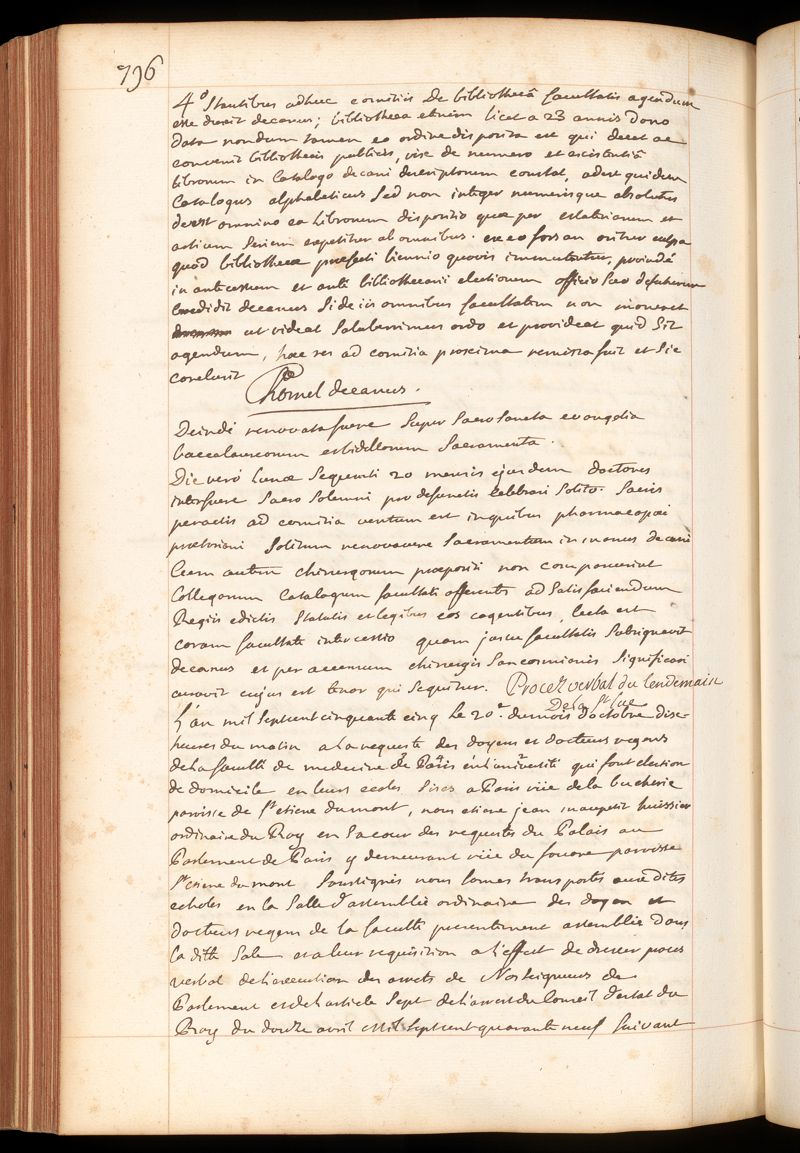 796
4° Stantibus adhuc comitiis de bibliotheca facultatis agendum
esse duxit decanus; bibliotheca etenim licet a 23 annis dono
data nondum tamen eo ordine disposita est qui decet ac
convenit bibliothecis publicis, vix de numero et existentiâ
librorum in Catalogo decani descriptorum constat, adest quidem
Catalogus alphabeticus sed non integer numerisque absolutus
deest omnino ea librorum dispositio quæ per
artium seriem expetitur ab omnibus. ex eo forsan oritur culpa
quod bibliothecæ præfecti biennio quovis immutantur, proindé
in anticessum et anté bibliothecarii electionem officio suo defuturum
credidit decanus si de iis omnibus facultatem non moneret
ut videat saluberrimus ordo et provideat quid sit
agendum, hæc res ad comitia proxima remissa fuit et sic
conclusit Chomel decanus.
Deindé renovata fuere super sacro sancta evangelia
baccalaureorum et bidellorum sacramenta.
Die veró lunæ sequenti 20 mensis ejusdem doctores
interfuere sacro solemni pro defunctis celebrari solito. sacris
peractis ad comitia ventum est in quibus pharmacopæi
prætoriani solitum renovavere sacramentum in manus decani
Cum autem chirurgorum præpositi non comparuerint
Collegorum catalogum facultati offerentes ad satisfaciendum
Regiis edictis statutis et legibus eos cogentibus, lecta est
coram facultate intercessio quam jussu facultatis subsignavit
decanus et per accensum chirurgis sancosmianis significari
curavit cujus est tenor qui sequitur. Procez verbal du lendemain
De la St luc
L'an mil sept cent cinquante cinq le 20e. du mois d'octobre dix
heures du matin a la requeste des doyens et docteurs regens
de la faculté de medecine de Paris en l'université qui font election
de domicile en leurs ecoles sises a Paris rüe de la bucherie
paroisse de St etiene du mont, nous etiene jean huissier
ordinaire du Roy en sa cour des requestes du Palais au
Parlement de Paris y demeurant rüe du fouare paroisse
St etiene du mont soussignés nous somes transportés aux dites
echoles en la salle d'assemblée ordinaire des doyen et
docteurs regens de la faculté presentement assemblée dans
la ditte sale et a leur requisition a l'effect de dresser proces
verbal de l'execution des arrets de Nosseigneurs de
Parlement et de l'article sept de l'arrest du Conseil d'estat du
Roy du douze avril mil sept cent quarante neuf suivant